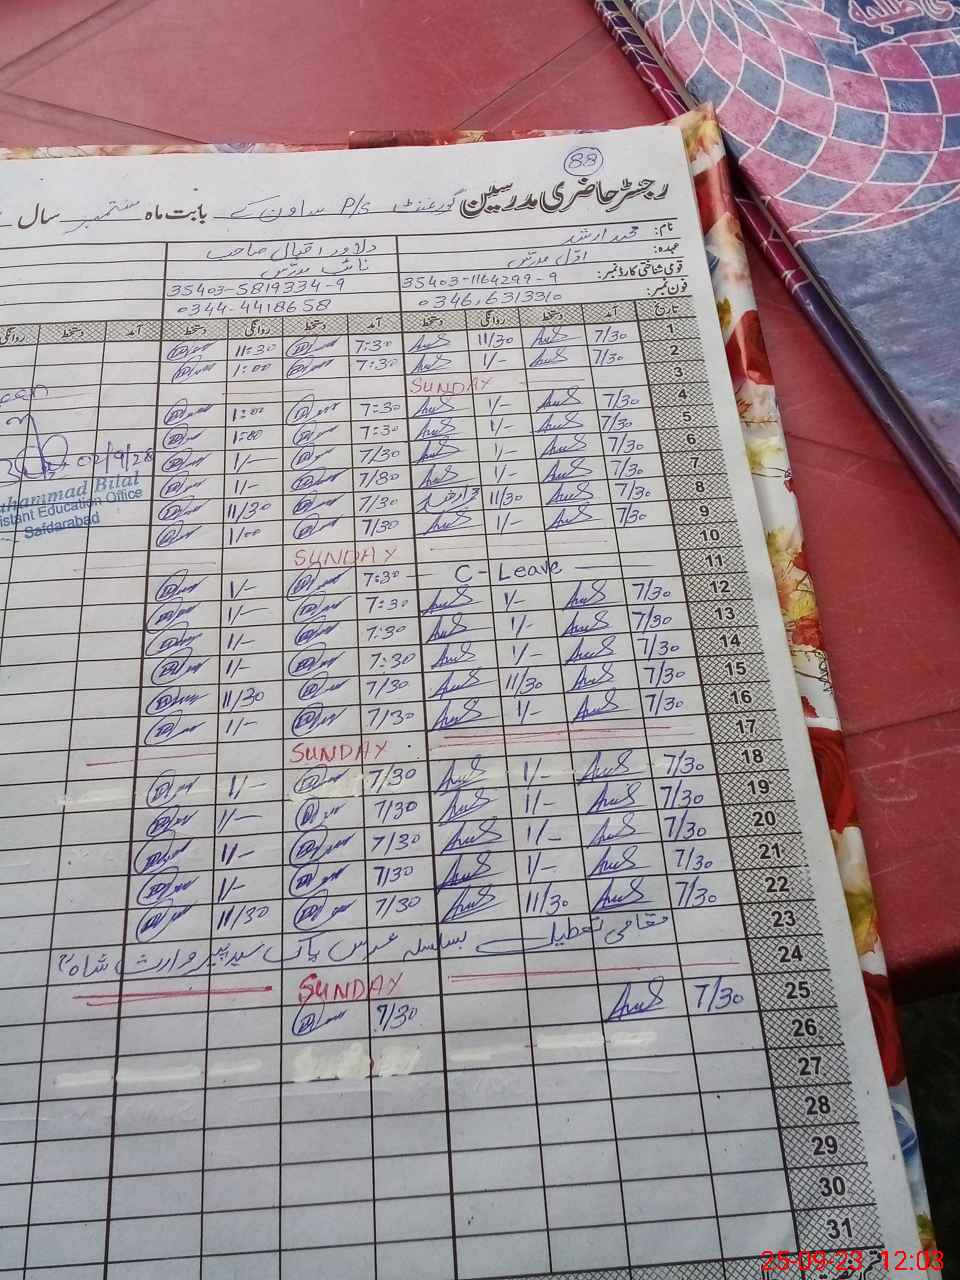 88
رجسٹر حاضری مدرسین گورنمنٹ P/S ساون کے بابت ماہ ستمبر سال
نام: محمد ارشد دلاور اقبال صاحب
عہدہ: اول مدرس نائب مدرس
قومی شناختی کارڈ نمبر: 35403-1164299-9 35403-5819334-9
فون نمبر: 0346,6313310 0344-4418658
تاریخ آمد دستخط روانگی دستخط آمد دستخط روانگی دستخط آمد دستخط روانگی
1 7/30 11/30 7:30 11:30
2 7/30 1/- 7:30 1:00
3 SUNDAY
4 7/30 1/- 7:30 1:00
5 7/30 1/- 7:30 1:00
6 7/30 1/- 7/30 1/-
7 7/30 1/- 7/30 1/-
8 7/30 11/30 7/30 11/30
9 7/30 1/- 7/30 1/00
10 SUNDAY
11 C-Leave 7:30 1/-
12 7/30 1/- 7:30 1/-
13 7/30 1/- 7:30 1/-
14 7/30 1/- 7:30 1/-
15 7/30 11/30 7/30 11/30
16 7/30 1/- 7/30 1/-
17 SUNDAY
18 7/30 1/- 7/30 1/-
19 7/30 1/- 7/30 1/-
20 7/30 1/- 7/30 1/-
21 7/30 1/- 7/30 1/-
22 7/30 11/30 7/30 11/30
23 مقامی تعطیل بسلسلہ عرس پاک سید پیر وارث شاہ
24 SUNDAY
25 7/30 7/30
26
27
28
29
30
31
02/9/23
Muhammad Bilal
Assistant Education Office
Safdarabad
25-09-23 12:03